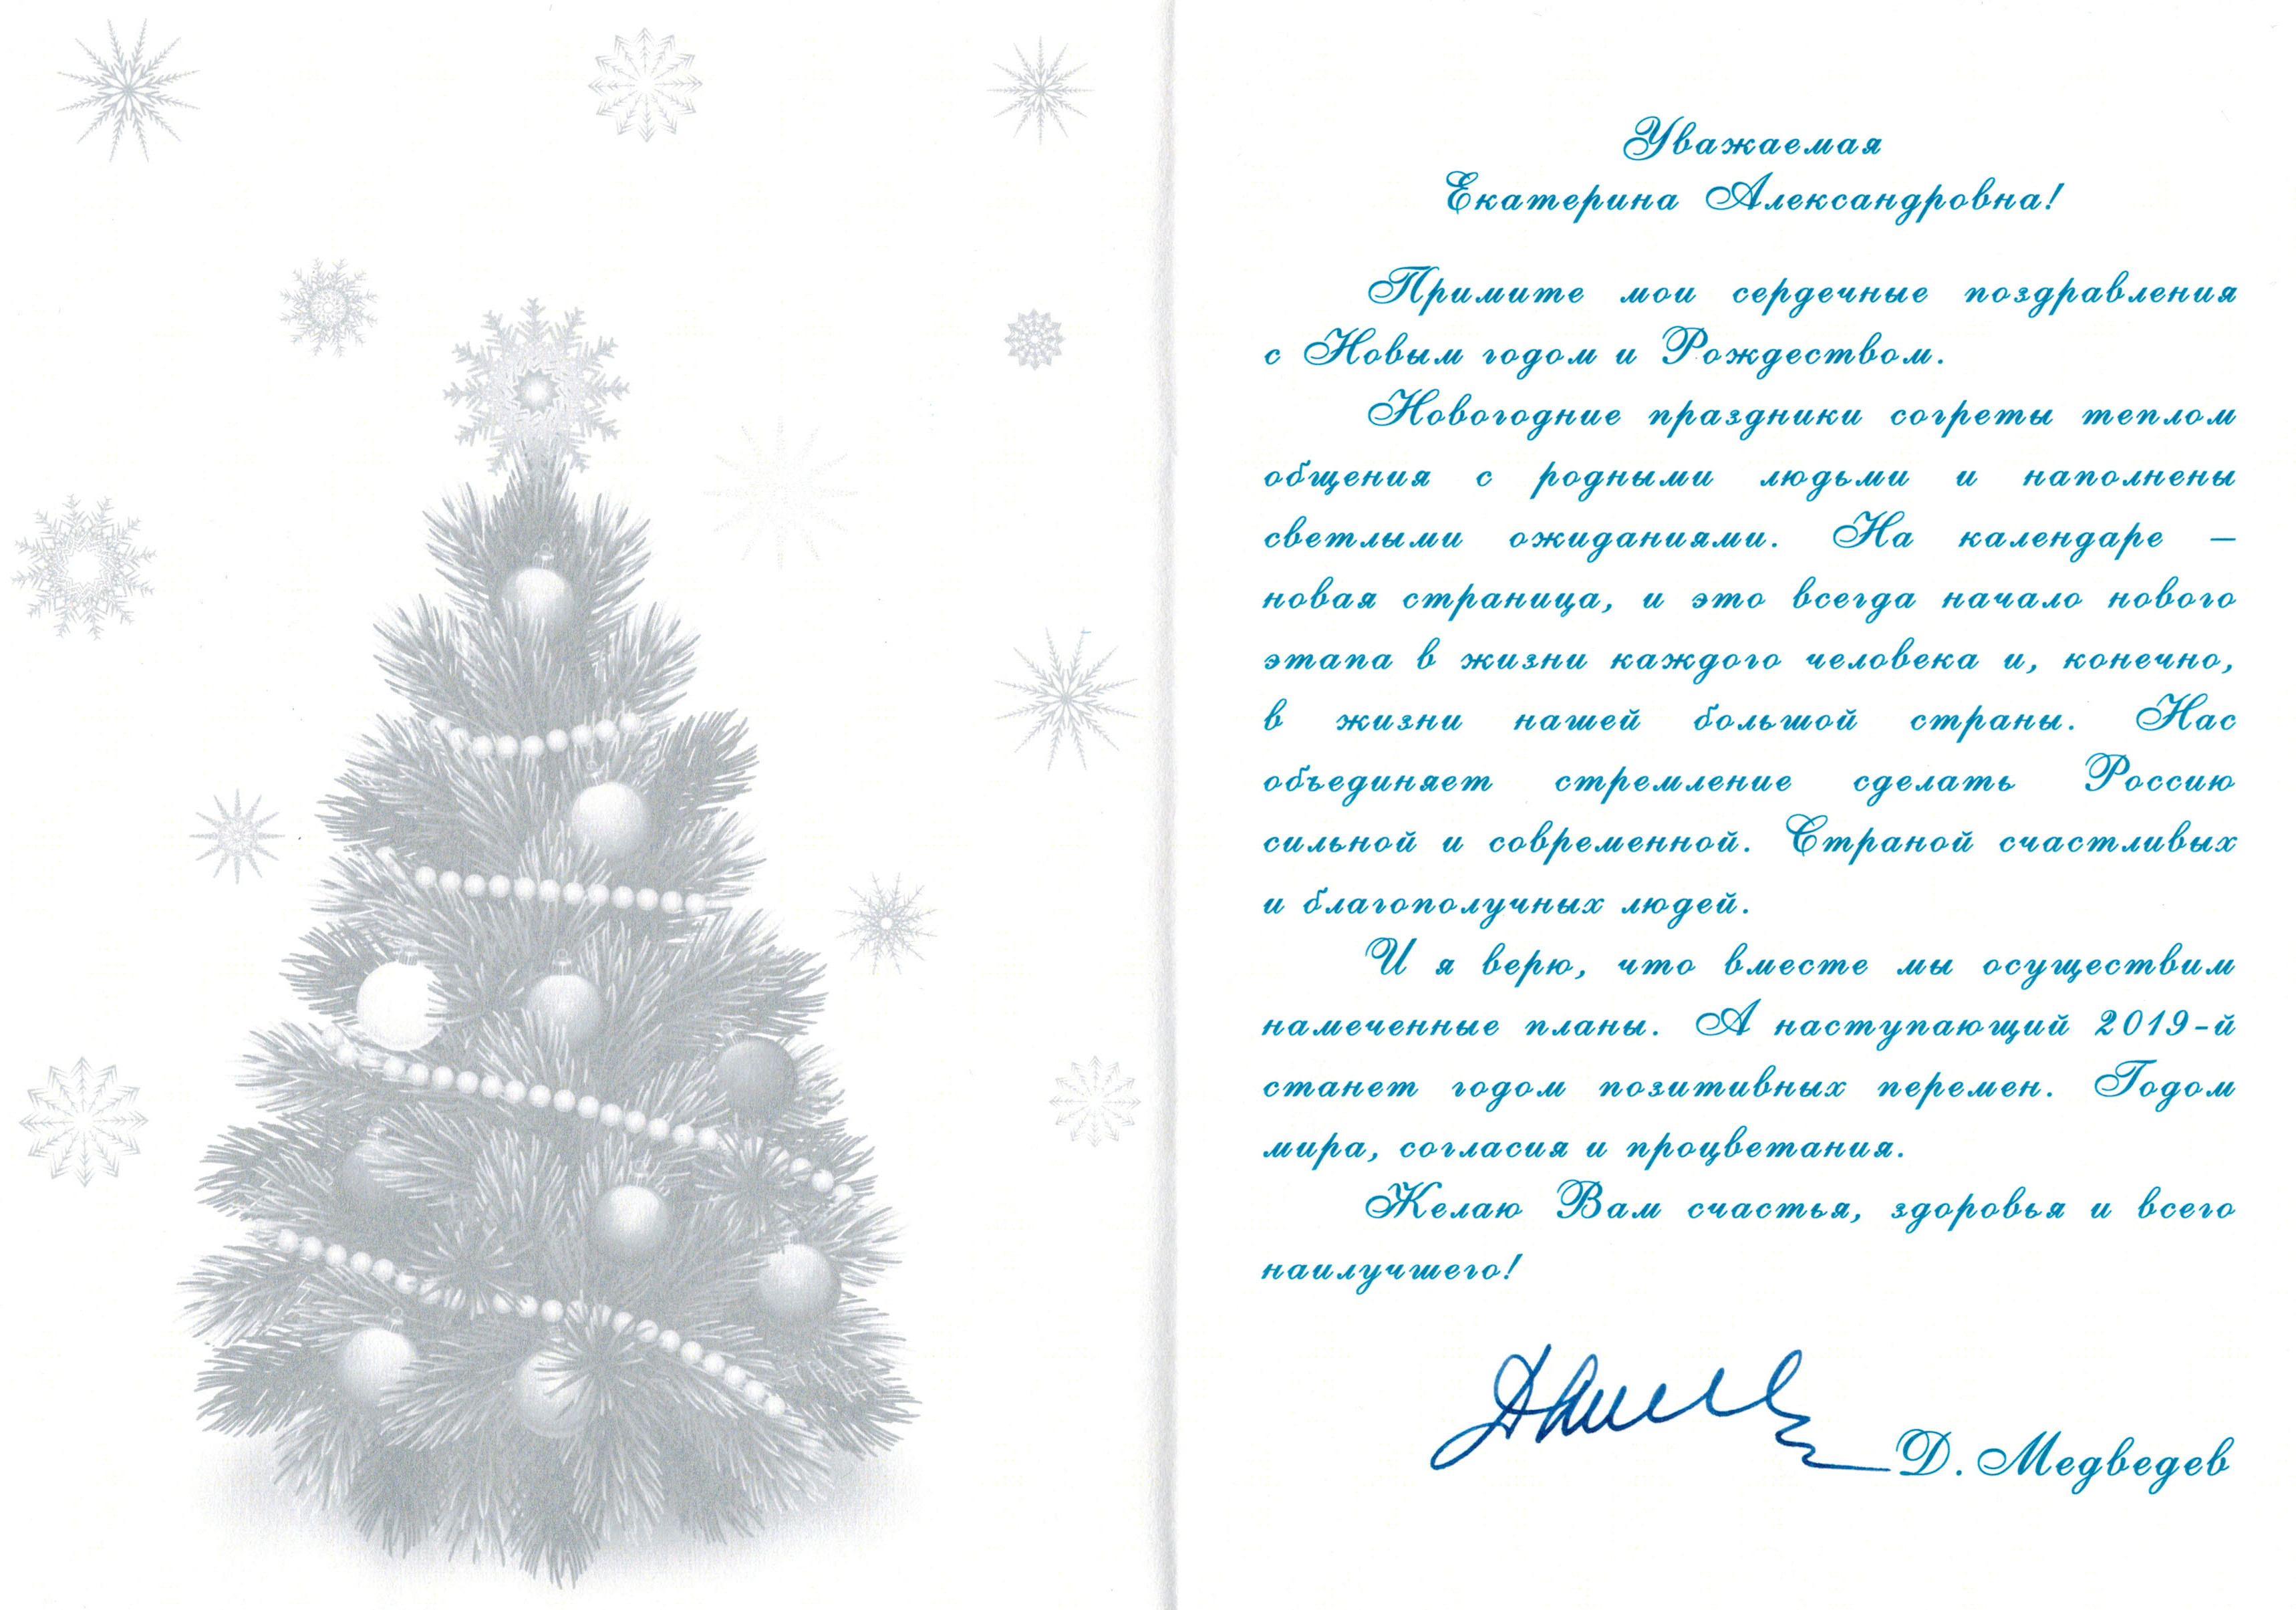 Уважаемая
Екатерина Александровна!
Примите мои сердечные поздравления
с Новым годом и Рождеством.
Новогодние праздники согреты теплом
общения с родными людьми и наполнены
светлыми ожиданиями. На календаре –
новая страница, и это всегда начало нового
этапа в жизни каждого человека и, конечно,
в жизни нашей большой страны. Нас
объединяет стремление сделать Россию
сильной и современной. Страной счастливых
и благополучных людей.
И я верю, что вместе мы осуществим
намеченные планы. А наступающий 2019-й
станет годом позитивных перемен. Годом
мира, согласия и процветания.
Желаю Вам счастья, здоровья и всего
наилучшего!
Д. Медведев